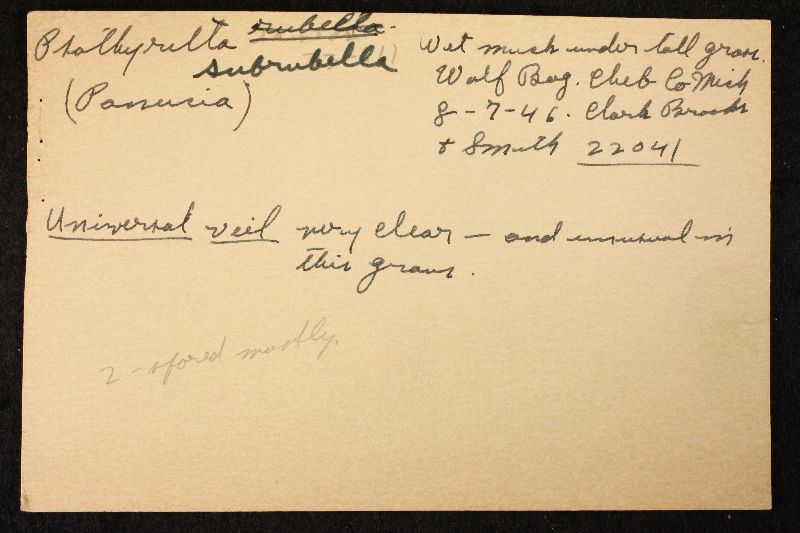 Psathyrella rubella
subrubella
(Panucia)
Wet muck under tall grass.
Wolf Bog. Cheb Co Mich
8-7-46. Clark Brooks
+ Smith 22041
Universal veil very clear — and unusual in
this group.
2-spored mostly.